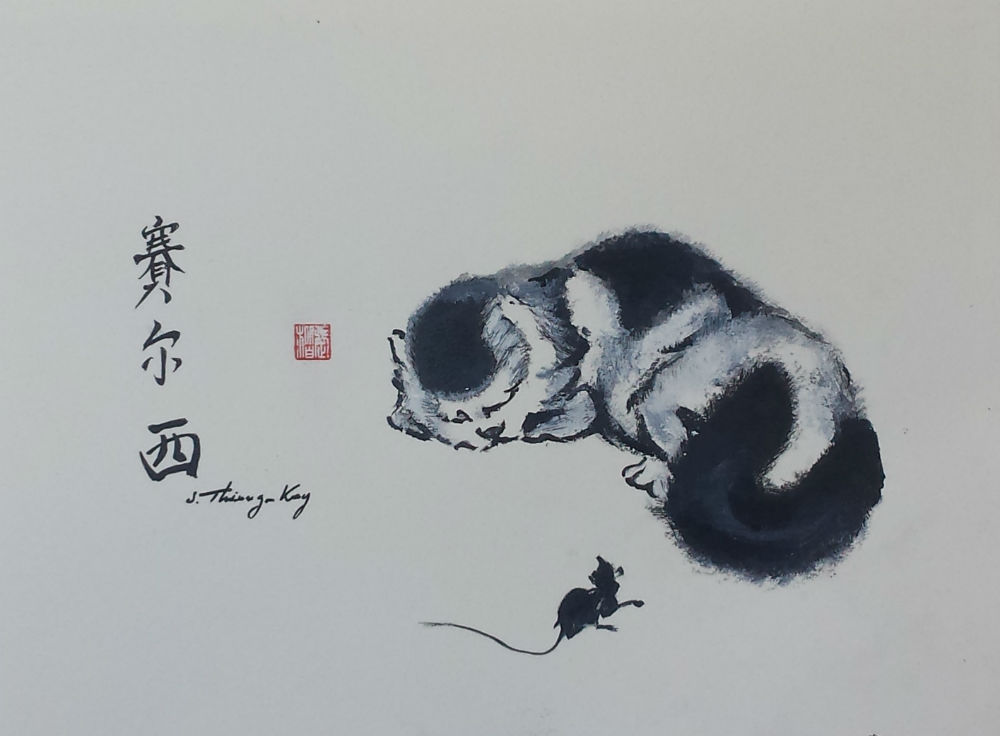 賽
尔
西
J. Thiong-Kay